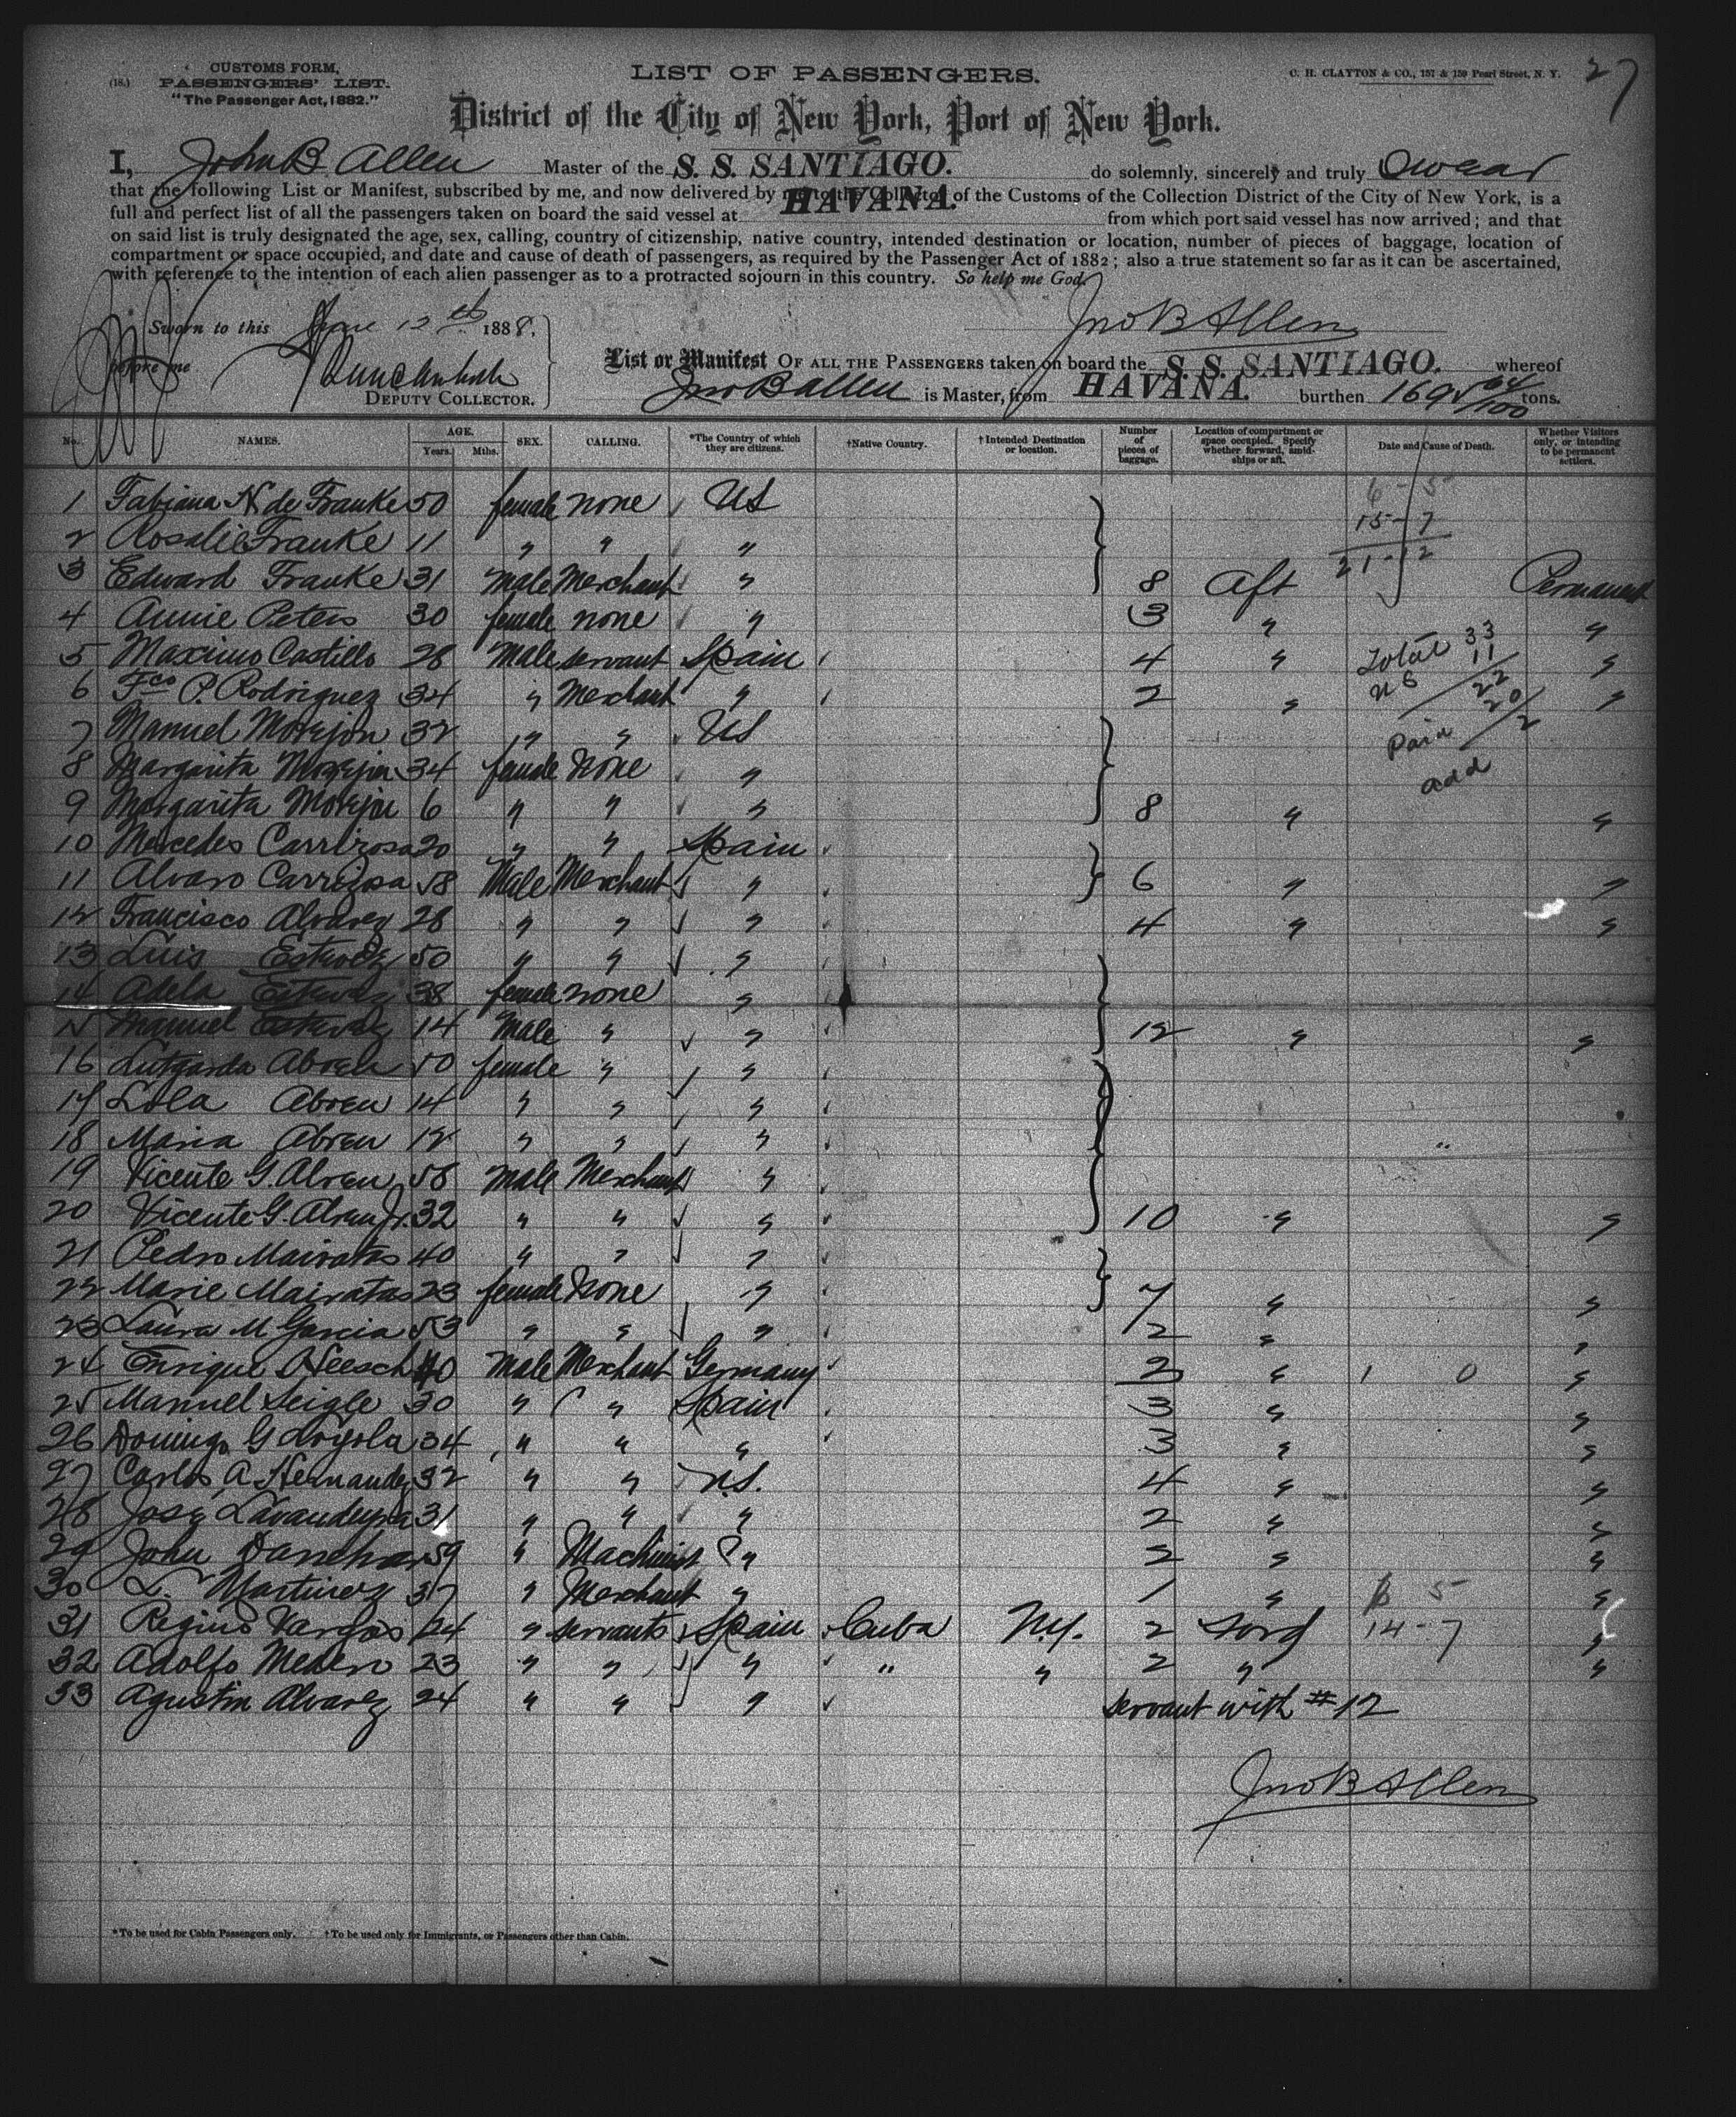 27
CUSTOMS FORM,
(18.) PASSENGERS' LIST.
"The Passenger Act, 1882."
LIST OF PASSENGERS.
C. H. CLAYTON & CO., 157 & 159 Pearl Street, N. Y.
District of the City of New York, Port of New York.
I, John B. Allen Master of the S. S. SANTIAGO. do solemnly, sincerely and truly Swear
that the following List or Manifest, subscribed by me, and now delivered by me to the Collector of the Customs of the Collection District of the City of New York, is a
full and perfect list of all the passengers taken on board the said vessel at HAVANA. from which port said vessel has now arrived; and that
on said list is truly designated the age, sex, calling, country of citizenship, native country, intended destination or location, number of pieces of baggage, location of
compartment or space occupied, and date and cause of death of passengers, as required by the Passenger Act of 1882; also a true statement so far as it can be ascertained,
with reference to the intention of each alien passenger as to a protracted sojourn in this country. So help me God.
Sworn to this June 12th 1888.
Jno B Allen
before me
DEPUTY COLLECTOR.
List or Manifest OF ALL THE PASSENGERS taken on board the S. S. SANTIAGO. whereof
Jno B Allen is Master, from HAVANA. burthen 1695 64/100 tons.
No. NAMES. AGE. Years. Mths. SEX. CALLING. *The Country of which they are citizens. †Native Country. †Intended Destination or location. Number of pieces of baggage. Location of compartment or space occupied. Specify whether forward, amidships or aft. Date and Cause of Death. Whether Visitors only, or intending to be permanent settlers.
1 Fabiana N de Franke 50 female none US 6-5
2 Rosalie Franke 11 " " " 15-7
3 Edward Franke 31 Male Merchant " 8 Aft 21-12 Permanent
4 Annie Peters 30 female none " 3 " "
5 Maximo Castillo 28 Male servant Spain 4 " Total 33 "
6 Fco P. Rodriguez 34 " Merchant " 2 " US 11 "
22
20
2
7 Manuel Morejon 32 " " US
8 Margarita Morejon 34 female None " add
9 Margarita Morejon 6 " " " 8 " "
10 Mercedes Carrirosa 20 " " Spain
11 Alvaro Carrizosa 58 Male Merchant " 6 " "
12 Francisco Alvarez 28 " " " 4 " "
13 Luis Estevez 50 " " "
14 Estevez 38 female none "
15 Manuel Estevez 14 Male " " 12 " "
16 Lutgarda Abreu 50 female " "
17 Lola Abreu 14 " " "
18 Maria Abreu 12 " " "
19 Vicente G. Abreu 56 Male Merchant "
20 Vicente G. Abreu Jr. 32 " " " 10 " "
21 Pedro Mairatas 40 " " "
22 Marie Mairatas 23 female None " 7 " "
23 Laura M Garcia 53 " " " 2 " "
24 Enrique Heesch 40 Male Merchant Germany 2 " 1 0 "
25 Manuel Seigle 30 " " Spain 3 " "
26 Domingo G Loyola 34 " " " 3 " "
27 Carlos A Hernandez 32 " " U.S. 4 " "
28 Jose Lavandeyra 31 " " " 2 " "
29 John 59 " Machinist " 2 " "
30 L. Martinez 37 " Merchant " 1 " 5 "
31 Regino Vargas 24 " servants Spain Cuba N.Y. 2 Ford 14-7 "
32 Adolfo 23 " " " " " 2 " "
33 Agustin Alvarez 24 " " " servant with #12
Jno B Allen
*To be used for Cabin Passengers only. †To be used only for Immigrants, or Passengers other than Cabin.